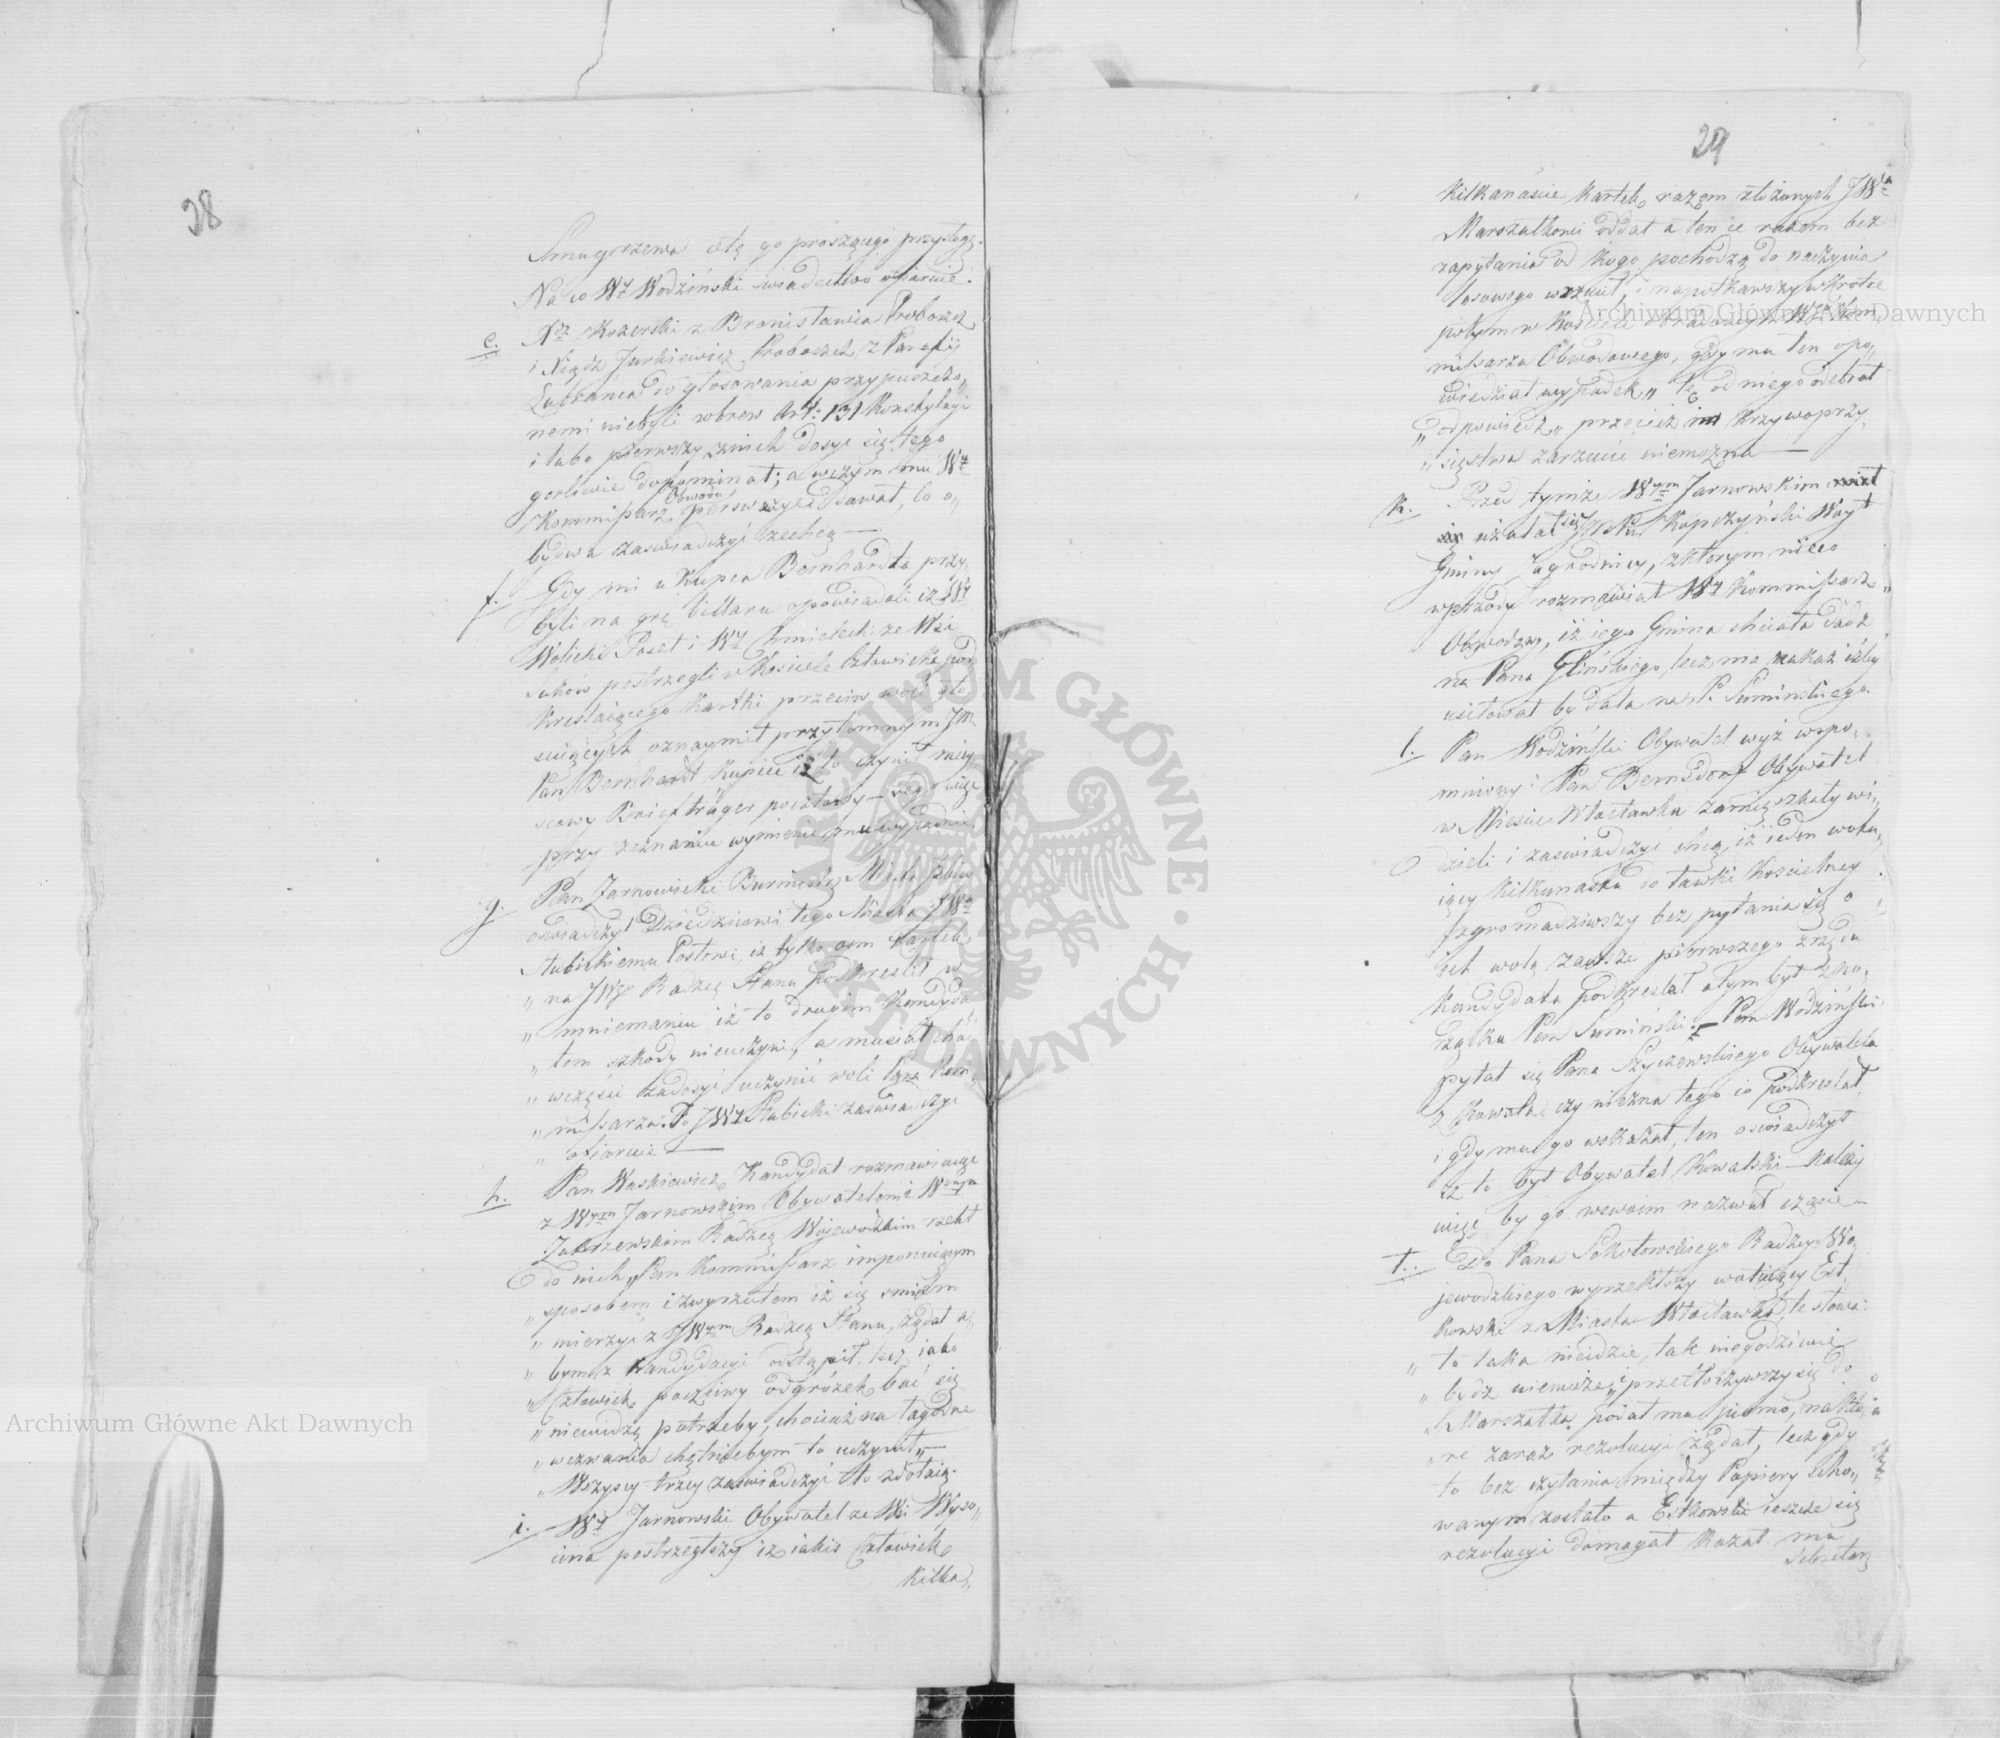 28
Smugorzewa o tę go proszącego przysługę.
Na co WJ Wodziński świadectwo ofiaruie.
e. Xdz Kozerski z Bronisławia Proboszcz
i Xiądz Jurkiewicz Proboszcz z Parafij
Lubrańca do głosowania przypuszczo„
nemi niebyli wbrew Art: 131 Konstytucyi
i lubo pierwszy z nich dosyć się tego
gorliwie dopominał; a w czym mu WJ
Kommissarz Obwodu perswazye dawał, to o„
bydwa zaświadczyć zechcą —
f. Gdy mi u Kupca Bernhardta przy„
byli na grę billaru opowiadali iż JWJ
Wolicki Poseł i WJ Chmielecki ze Wsi
postrzegli w Kościele Człowieka pod„
kreslaiącego Kartki przeciw woli gło„
suiących, oznaymił przytomnym JM
Pan Bernhardt Kupiec iż to czynił miey„
scowy Briefträger pocztowy — tego więc
przy zeznaniu wymienić mu wypadnie.
g. Pan Żarnowiecki Burmistrz Miasta
oświadczył Dziedzicowi tego Miasta JWu
Słubickiemu Posłowi, iż tylko osm Kartek
„ na JWgo Radzcę Stanu podkreslił w
„ mniemaniu iż to drugim Kandyda„
„ tom szkody nieuczyni, a musiał cho„
„ wczęści zadosyć uczynić woli Pana Kom„
„ missarza. To JWJ Słubicki zaświadczyć
„ ofiaruie —
h. Pan Waskiewicz Kandydat rozmawiaiąc
z WJym Jarnowskim Obywatelem i
Zakrzewskim Radzcą Woiewódzkim rzekł
do nich „Pan Kommissarz imponuiącym
„ sposobem i z wyrzutem iż się smiem
„ mierzyć z JWym Radzcą Stanu, żądał a„
„ bym z Kandydacyi odstąpił. lecz iako
„ Człowiek poczciwy odgróżek bać się
„ niewidzę potrzeby, chociaż na łagodne
„ wezwania chętniebym to uczynił„ —
„ Wszyscy trzey zaświadczyć to zdołaią.
i. WJ Jarnowski Obywatel ze Wsi Wyso„
cina postrzegłszy iż iakiś Człowiek
Kilka„
29
Kilkanaście Kartek razem złożonych JWu
Marszałkowi oddał a ten ie razem bez
zapytania od kogo pochodzą do naczynia
losowego wrzucił, i napotkawszy wkrótce
potym w Kościele obradowym WJ Kom„
missarza Obwodowego, gdy mu ten opo„
wiedział wypadek, tę od niego odebrał
„ odpowiedź „ przecież im krzywoprzy„
„ sięstwa zarzucić niemożna —
k. Przed tymże WJym Jarnowskim
użalał się JM Pan Kopczyński Woyt
Gminy Zagrodnicy, z którym nieco
wprzódy rozmawiał WJ Kommissarz
Obwodowy, iż iego Gmina chciała dadz
na Pana Glińskiego, lecz ma nakaz iżby
usiłował by dała na P. Sumińskiego.
l. Pan Wodziński Obywatel wyż wspo„
mniony i Pan Bernsdorf Obywatel
w Miescie Włocławku zamieszkały wi„
dzieli i zaświadczyć chcą, iż ieden wotu„
iący kilkunastu do ławki Kościelney
zgromadziwszy bez pytania się o
ich wolą zawsze pierwszego z rzędu
Kandydata podkreslał a tym był z po„
rządku Pan Sumiński: — Pan Wodziński
pytał się Pana Szyszewskiego Obywatela
z Kowala czy niezna tego co podkreslał,
i gdy mu go wskazał, ten oświadczył
że to był Obywatel Kowalski — Należy
więc by go wswoim nazwał czasie —
ł. Do Pana Sokołowskiego Radzcy Wo„
jewodzkiego wyrzekłszy wotuiący Est„
kowski z Miasta Włocławka te słowa:
„ to tak nieidzie, tak niegodziwie
„ bydz niemoże„ i przetłoczywszy się do
„ Marszałka podał mu pismo, na któ„
„ re zaraz rezolucyi żądał, lecz gdy
to bez czytania między Papiery scho„
wanym zostało a Estkowski ieszcze się
rezolucyi domagał kazał mu
Sekretarz